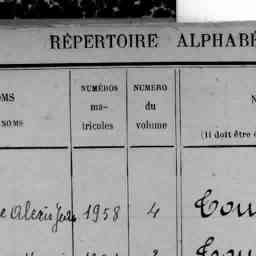 RÉPERTOIRE ALPHABÉ
OMS
NOMS
NUMÉROS
ma-
tricules
NUMERO
du
volume
N
(Il doit être
e Alexis Jean 1958 4 Cou